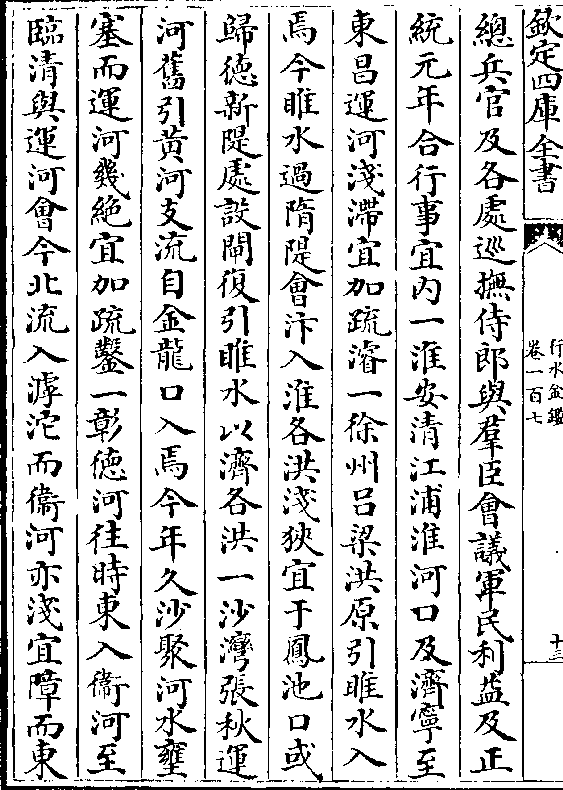 欽定四庫全書
行水金鑑
卷一百七
十三
總兵官及各處巡撫侍郎與羣臣會議軍民利益及正
統元年合行事宜内一淮安清江浦淮河口及濟寧至
東昌運河淺滯宜加疏濬一徐州吕梁洪原引睢水入
焉今睢水過隋隄會汴入淮各洪淺狹宜于鳳池口或
歸德新隄處設閘復引睢水以濟各洪一沙灣張秋運
河舊引黄河支流自金龍口入焉今年久沙聚河水壅
塞而運河幾絶宜加疏鑿一彰德河往時東入衞河至
臨清與運河會今北流入滹沱而衞河亦淺宜障而東